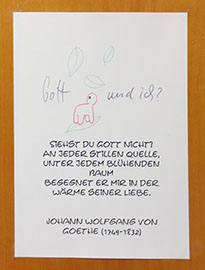 Gott und ich?
SIEHST DU GOTT NICHT?
AN JEDER STILLEN QUELLE,
UNTER JEDEM BLÜHENDEN
BAUM
BEGEGNET ER MIR IN DER
WÄRME SEINER LIEBE.
JOHANN WOLFGANG VON
GOETHE (1749-1832)